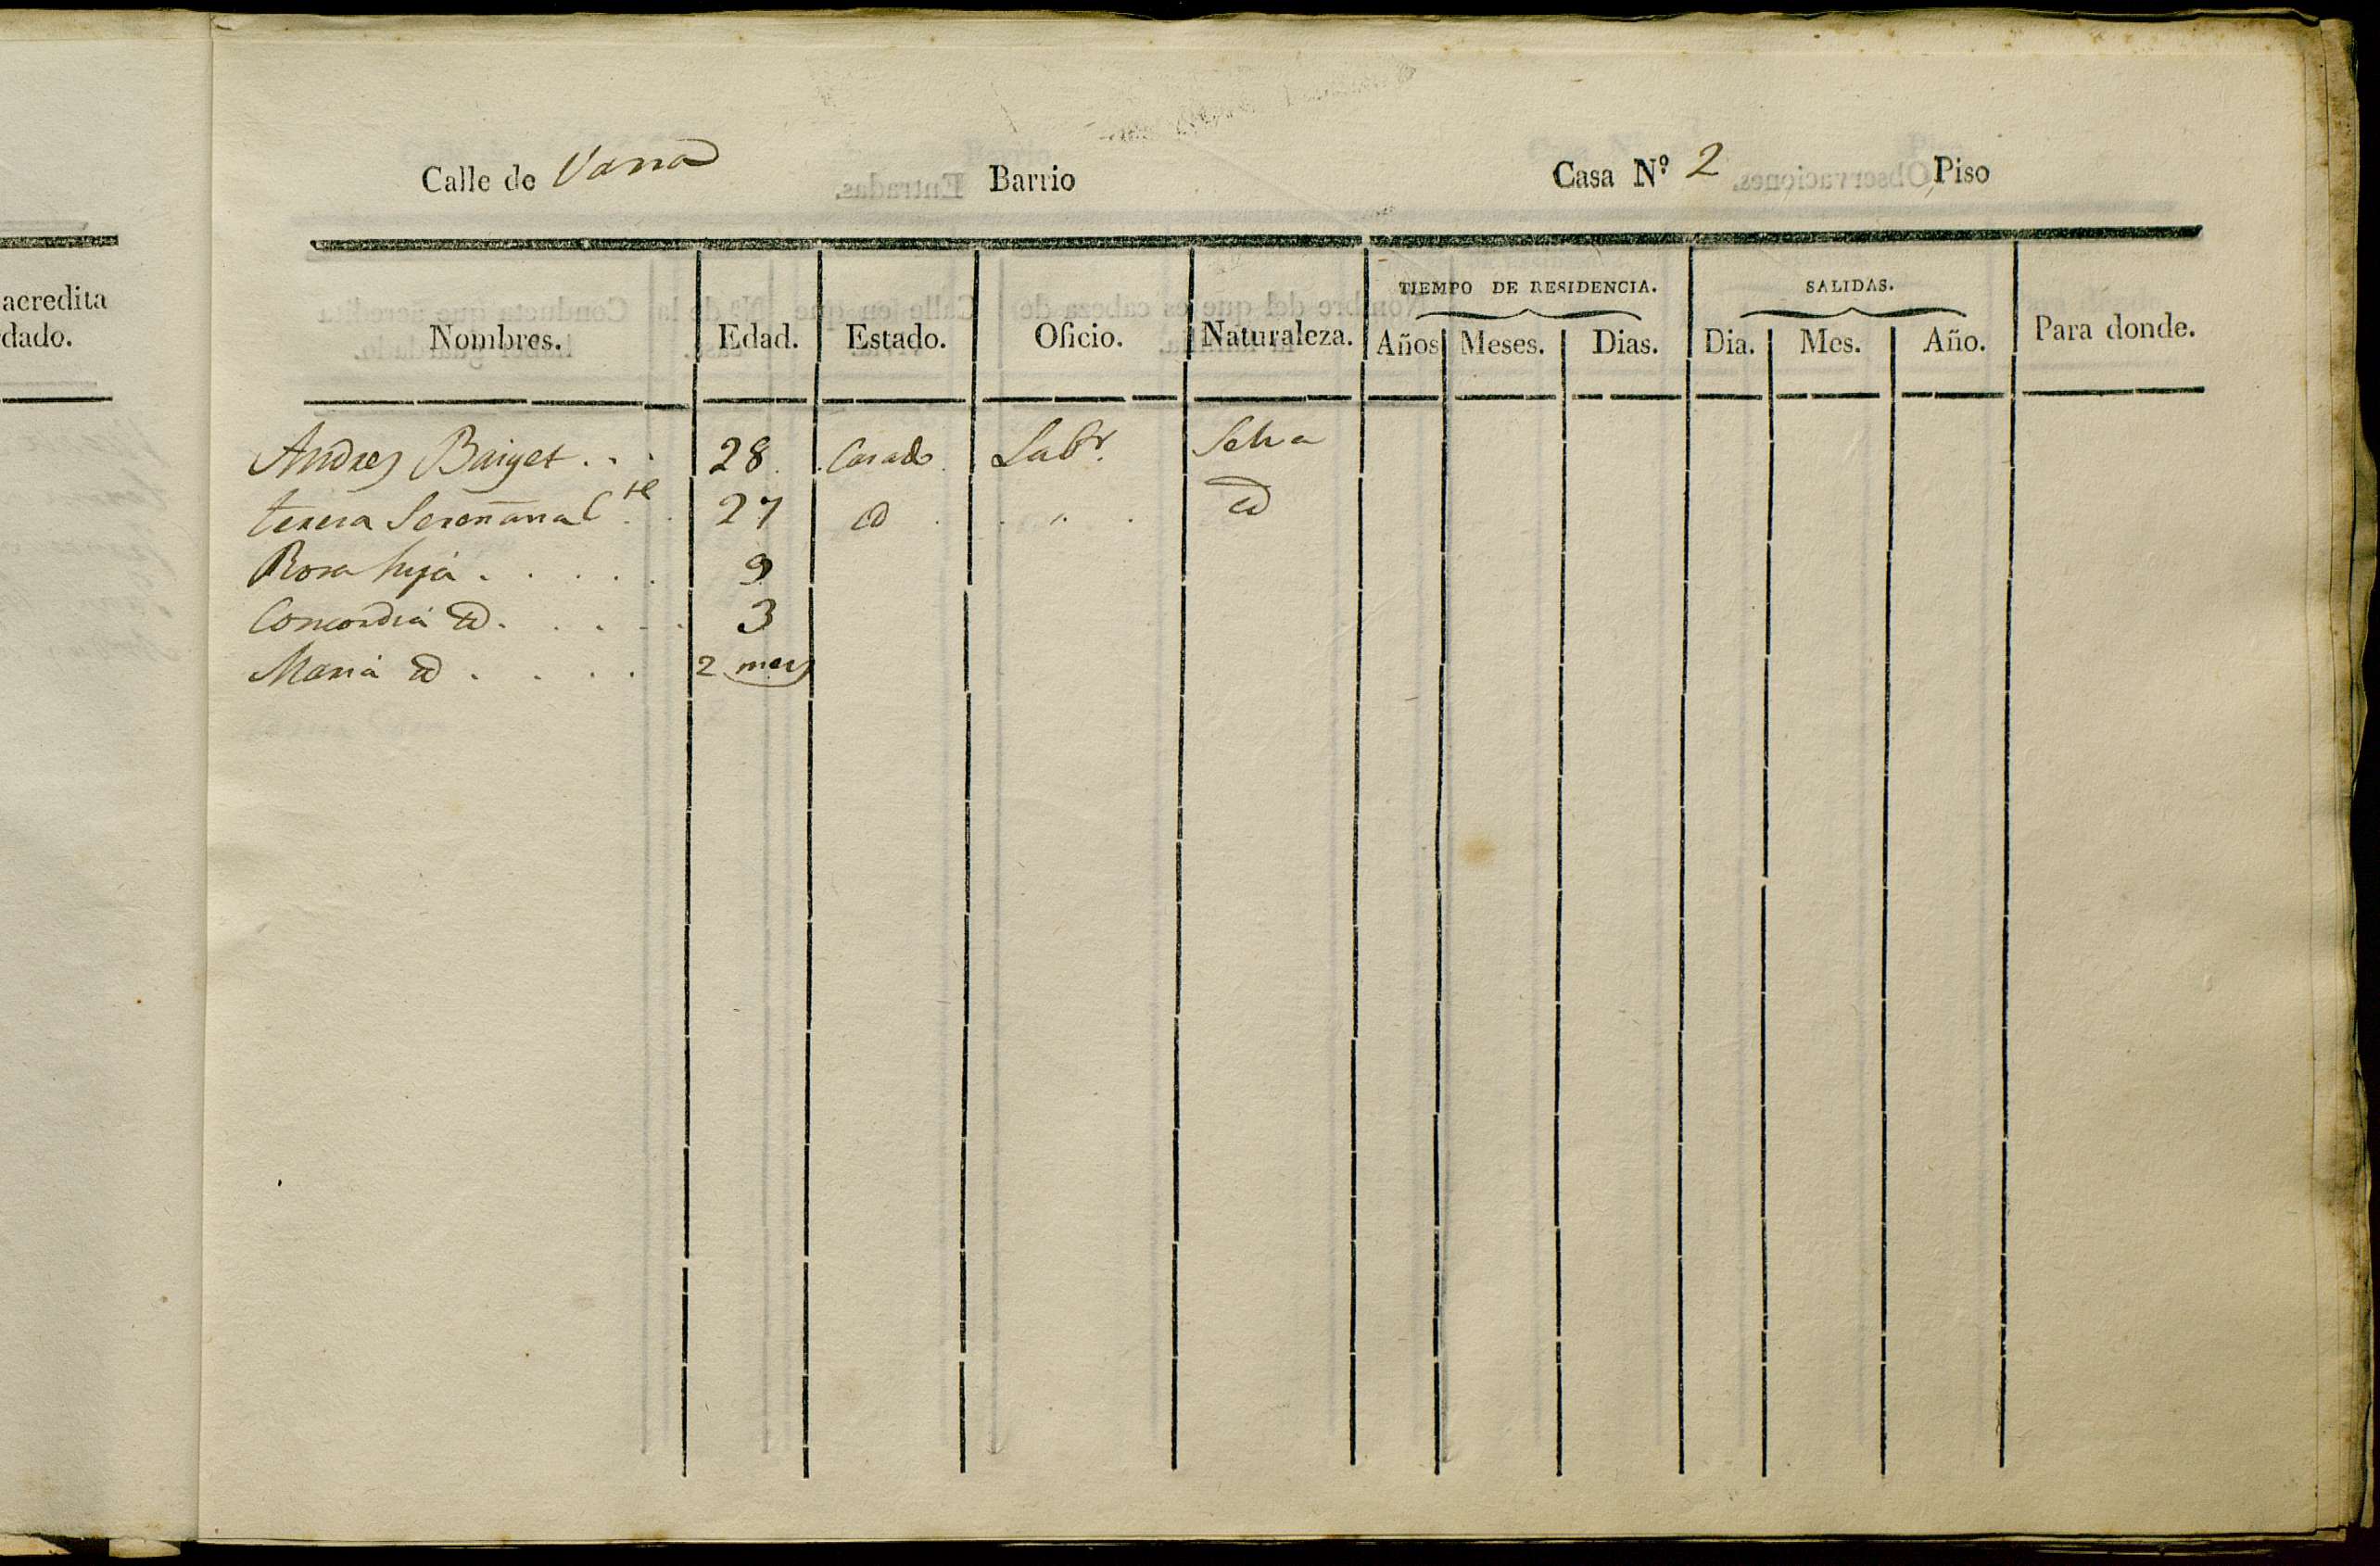 acredita
dado.
Calle de Barrio Casa Nº 2 Piso
TIEMPO DE RESIDENCIA. SALIDAS.
Nombres. Edad. Estado. Oficio. Naturaleza. Años Meses. Dias. Dia. Mes. Año. Para donde.
Andres Baiget . . . 28 . Casado . Labr. Selva
teresa Sereñana Cte . . 27 id . . " . id
Rosa hija . . . . . 9
Concordia id . . . . 3
Maria id . . . . 2 mes